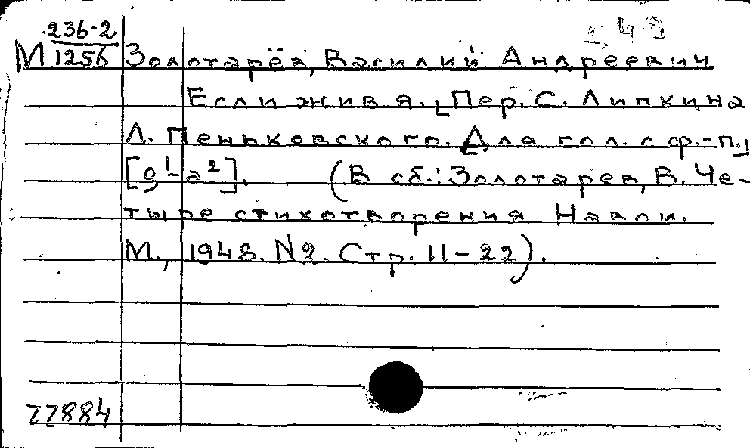 236-2
М 1256 Золотарёв, Василий Андреевич
Если жив я. Пер. С. Липкина
Л. Пеньковского. Для гол. с ф.-п.
[g¹-a²]. (В сб.: Золотарев, В. Че-
тыре стихотворения Навои.
М., 1948. №2. Стр. 11-22).
77884